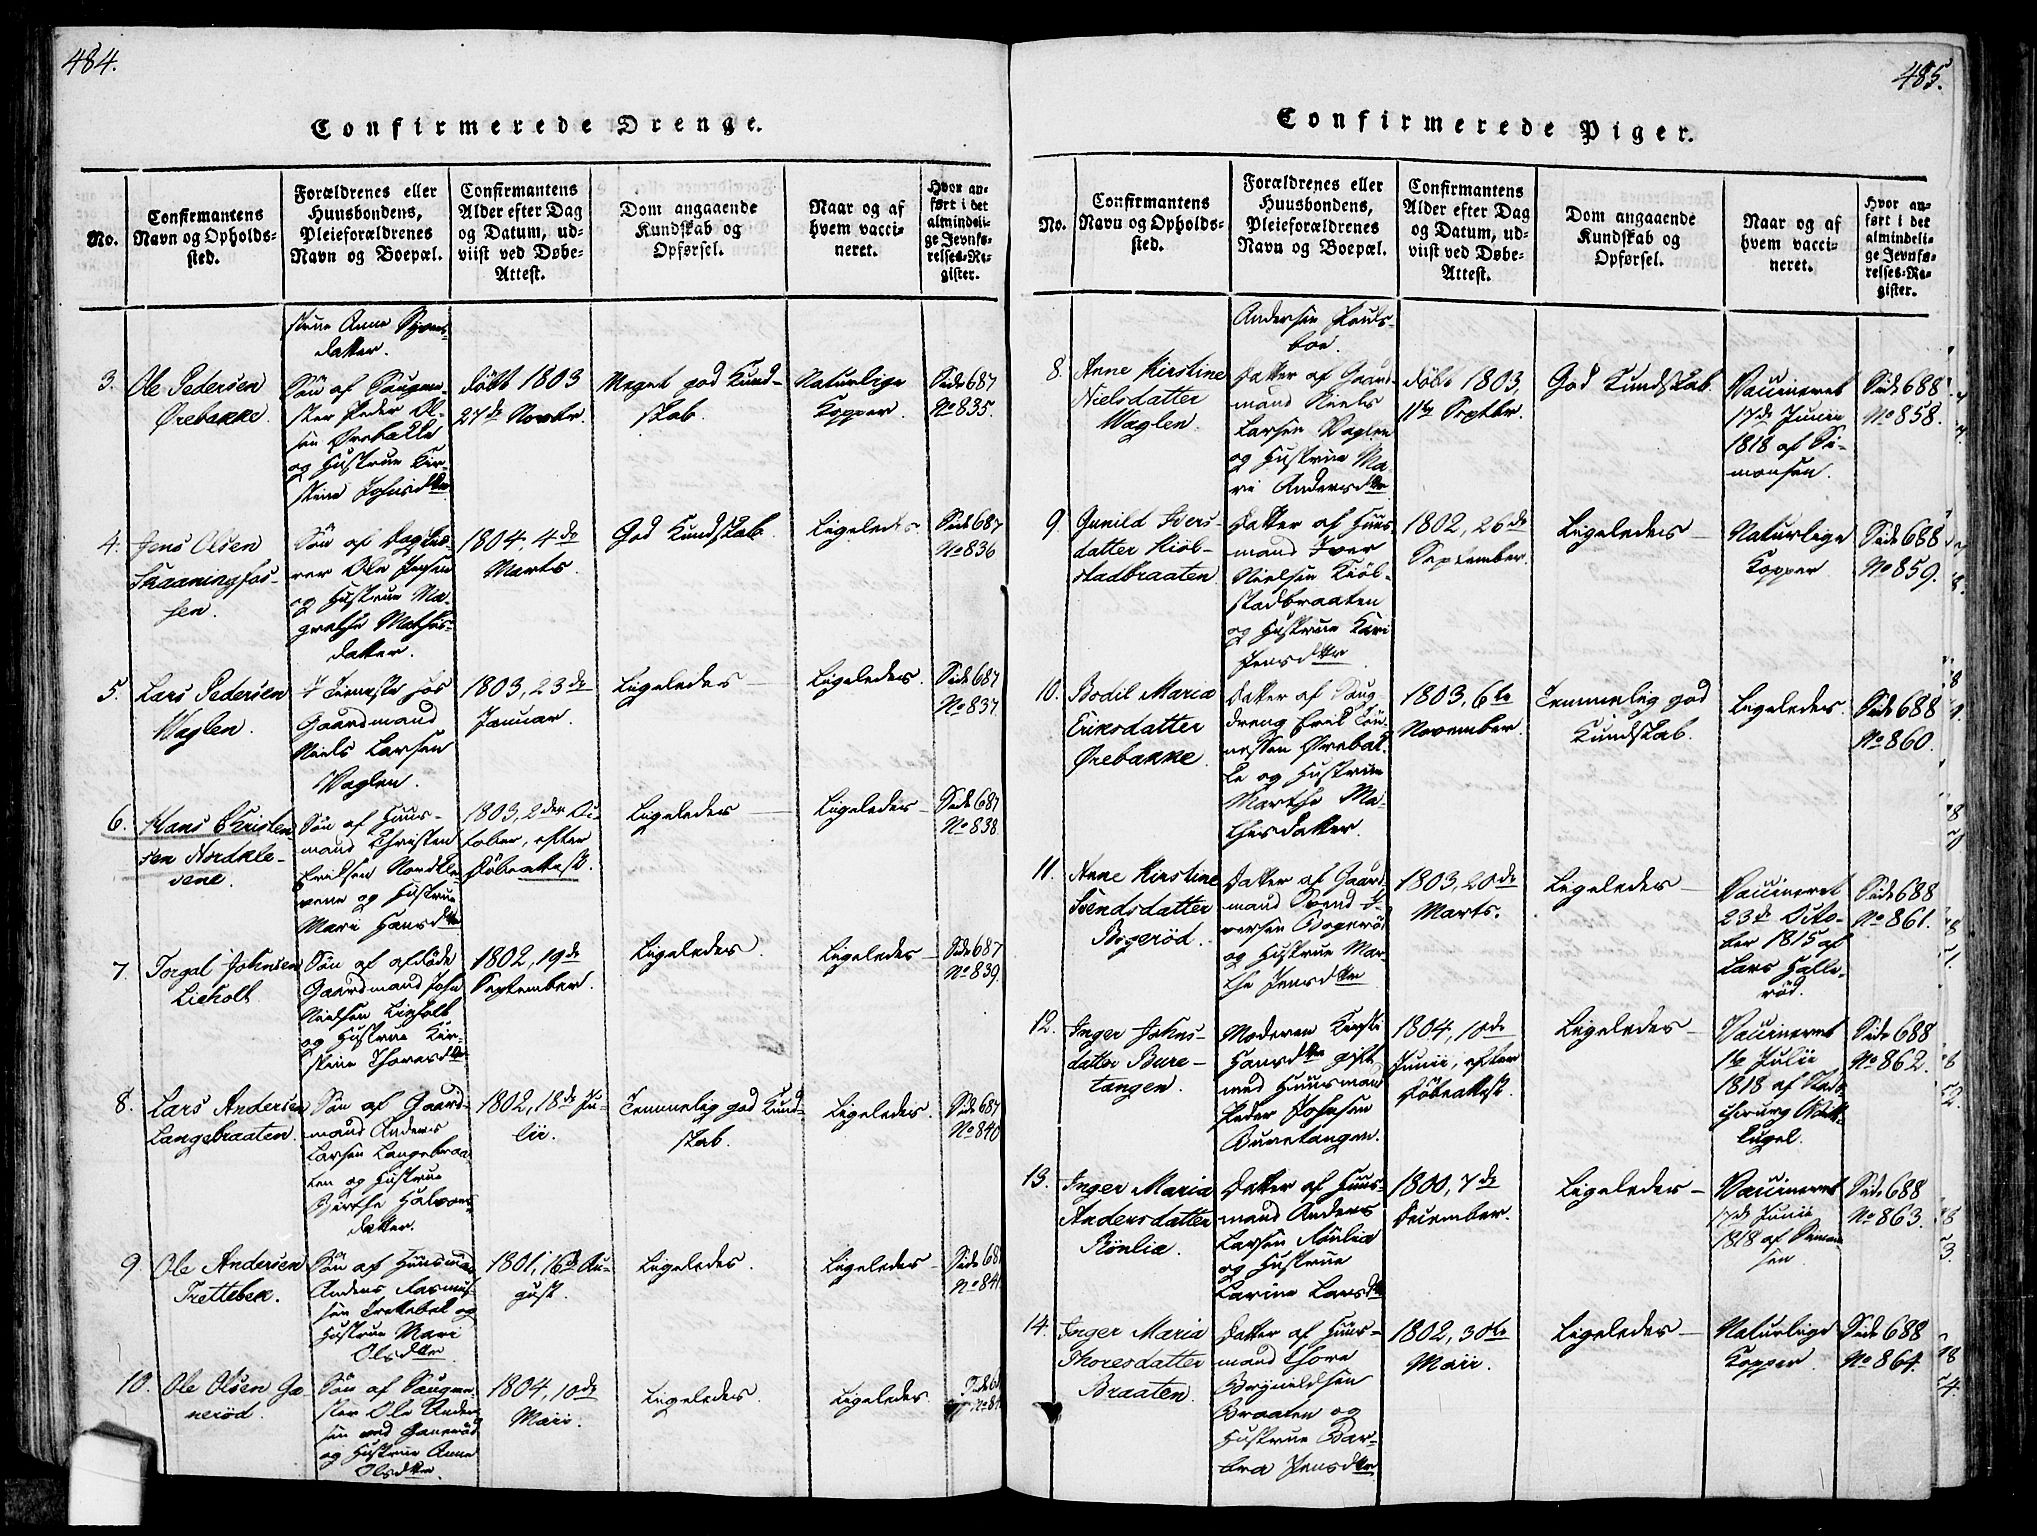 484.
Confirmerede Drenge.
No.
Confirmantens
Navn og Opholds-
sted.
Forældrenes eller
Huusbondens,
Pleieforældrenes
Navn og Boepæl.
Confirmantens
Alder efter Dag
og Datum, ud-
viist ved Døbe-
Attest.
Dom angaaende
Kundskab og
Opførsel.
Naar og af
hvem vacci-
neret.
Hvor an-
ført i det
almindeli-
ge Jevnfø-
relses-Re-
gister.
strue Anne
datter.
3.
Ole Pedersen
Ørebakke.
Søn af Saugme-
ster Peder Ol-
sen Ørebakke
og Hustrue Kir-
stine Johnsdtr
døbt 1803
27de Novbr.
Meget god Kund-
skab.
Naturlige
Kopper.
Side 687
No 835.
4.
Jens Olsen
Skaaningfos-
sen.
Søn af Dagleie-
rer Ole Jensen
og Hustrue Ma-
grethe Mathis-
datter.
1804, 4de
Marts.
God Kundskab.
Ligeledes.
Side 687
No 836
5.
Lars Pedersen
Waglen.
I Tieneste hos
Gaardmand
Niels Larsen
Vaglen.
1803, 23de
Januar.
Ligeledes
Ligeledes.
Side 687
No 837.
6.
Hans Christen
sen Nordkle-
vene.
Søn af Huus-
mand Christen
Eriksen Nordkle-
vene og Hustrue
Mari Hansdtr
1803, 2den Oc-
tober, efter
Døbeattest.
Ligeledes
Ligeledes
Side 687
No 838.
7.
Torgal Johnsen
Lieholt
Søn af afdøde
Gaardmand John
Nielsen Lieholt
og Hustrue Kir-
stine Thoresdtr
1802, 19de
September.
Ligeledes.
Ligeledes
Side 687
No 839.
8.
Lars Andersen
Langebraaten.
Søn af Gaard-
mand Anders
Larsen Langebraa-
ten og Hustrue
Berthe Halvors-
datter.
1802, 18de Ju-
lii.
Temmelig god Kund-
skab.
Ligeledes.
Side 687
No 840
9
Ole Andersen
Trettebek.
Søn af Huusmand
Anders Rasmus-
sen Trettebek og
Hustrue Mari
Olsdtr.
1801, 16de Au-
gust.
Ligeledes.
Ligeledes.
Side 68
No 84
10.
Ole Olsen Ga
nerød.
Søn af Saugme-
ster Ole Ander
sen ved Ganerød
og Hustrue Anne
Olsdtr.
1804, 10de
Maii.
Ligeledes.
Ligeledes
Side 6
No 84
485.
Confirmerede Piger.
No.
Confirmantens
Navn og Opholds-
sted.
Forældrenes eller
Huusbondens,
Pleieforældrenes
Navn og Boepæl.
Confirmantens
Alder efter Dag
og Datum, ud-
viist ved Døbe-
Attest.
Dom angaaende
Kundskab og
Opførsel.
Naar og af
hvem vacci-
neret.
Hvor an-
ført i det
almindeli-
ge Jevnfø-
relses-Re-
gister.
Andersen Pauls-
boe.
8.
Anne Kirstine
Nielsdatter
Waglen.
Datter af Gaard-
mand Niels
Larsen Vaglen
og Hustrue Ma-
ri Andersdtr
døbt 1803,
11te Septbr.
God Kundskab.
Vaccineret
17de Junii
1818 af Si-
monsen.
Side 688
No 858.
9.
Gunild Ivers-
datter Kiøl-
stadbraaten.
Datter af Huus-
mand Iver
Nielsen Kiøl-
stadbraaten
og Hustrue Kari
Jensdtr
1802, 26de
September.
Ligeledes
Naturlige
Kopper
Side 688
No 859.
10.
Bodil Maria
Eriksdatter
Ørebakke.
Datter af Saug
dreng Erik Tøn-
nessen Ørebak-
ke og Hustrue
Marthe Ma-
thisdatter.
1803, 6te
November.
Temmelig god
Kundskab.
Ligeledes.
Side 688
No 860.
11.
Anne Kirstine
Svendsdatter
Bogerød.
Datter af Gaard
mand Svend I-
versen Bogerød
og Hustrue Mar-
the Jensdtr
1803, 20de
Marts.
Ligeledes
Vaccineret
23de Octo-
ber 1815 af
Lars Halle-
rød.
Side 688
No 861.
12.
Inger Johns-
datter Bure-
tangen.
Moderen Kirsti
Hansdtr gift
med Huusmand
Peder Johnsen
Buretangen.
1804, 10de
Junii, efter
Døbeattest.
Ligeledes
Vaccineret
1te Julii
1818 af
chirurg
kugel.
Side 688
No 862.
13.
Inger Maria
Andersdatter
Rønlia.
Datter af Huus-
mand Anders
Larsen Rønlia
og Hustrue
Karine Larsdtr
1800, 7de
December.
Ligeledes
Vaccineret
17de Junii
1818 af Simon-
sen
Side 688
No 863.
14.
Inger Maria
Thoresdatter
Braaten.
Datter af Huus-
mand Thore
Brynildsen
Braaten og
Hustrue Bar-
bra Jensdtr
1802, 30te
Maii.
Ligeledes
Naturlige
Kopper.
Side 688
No 864.